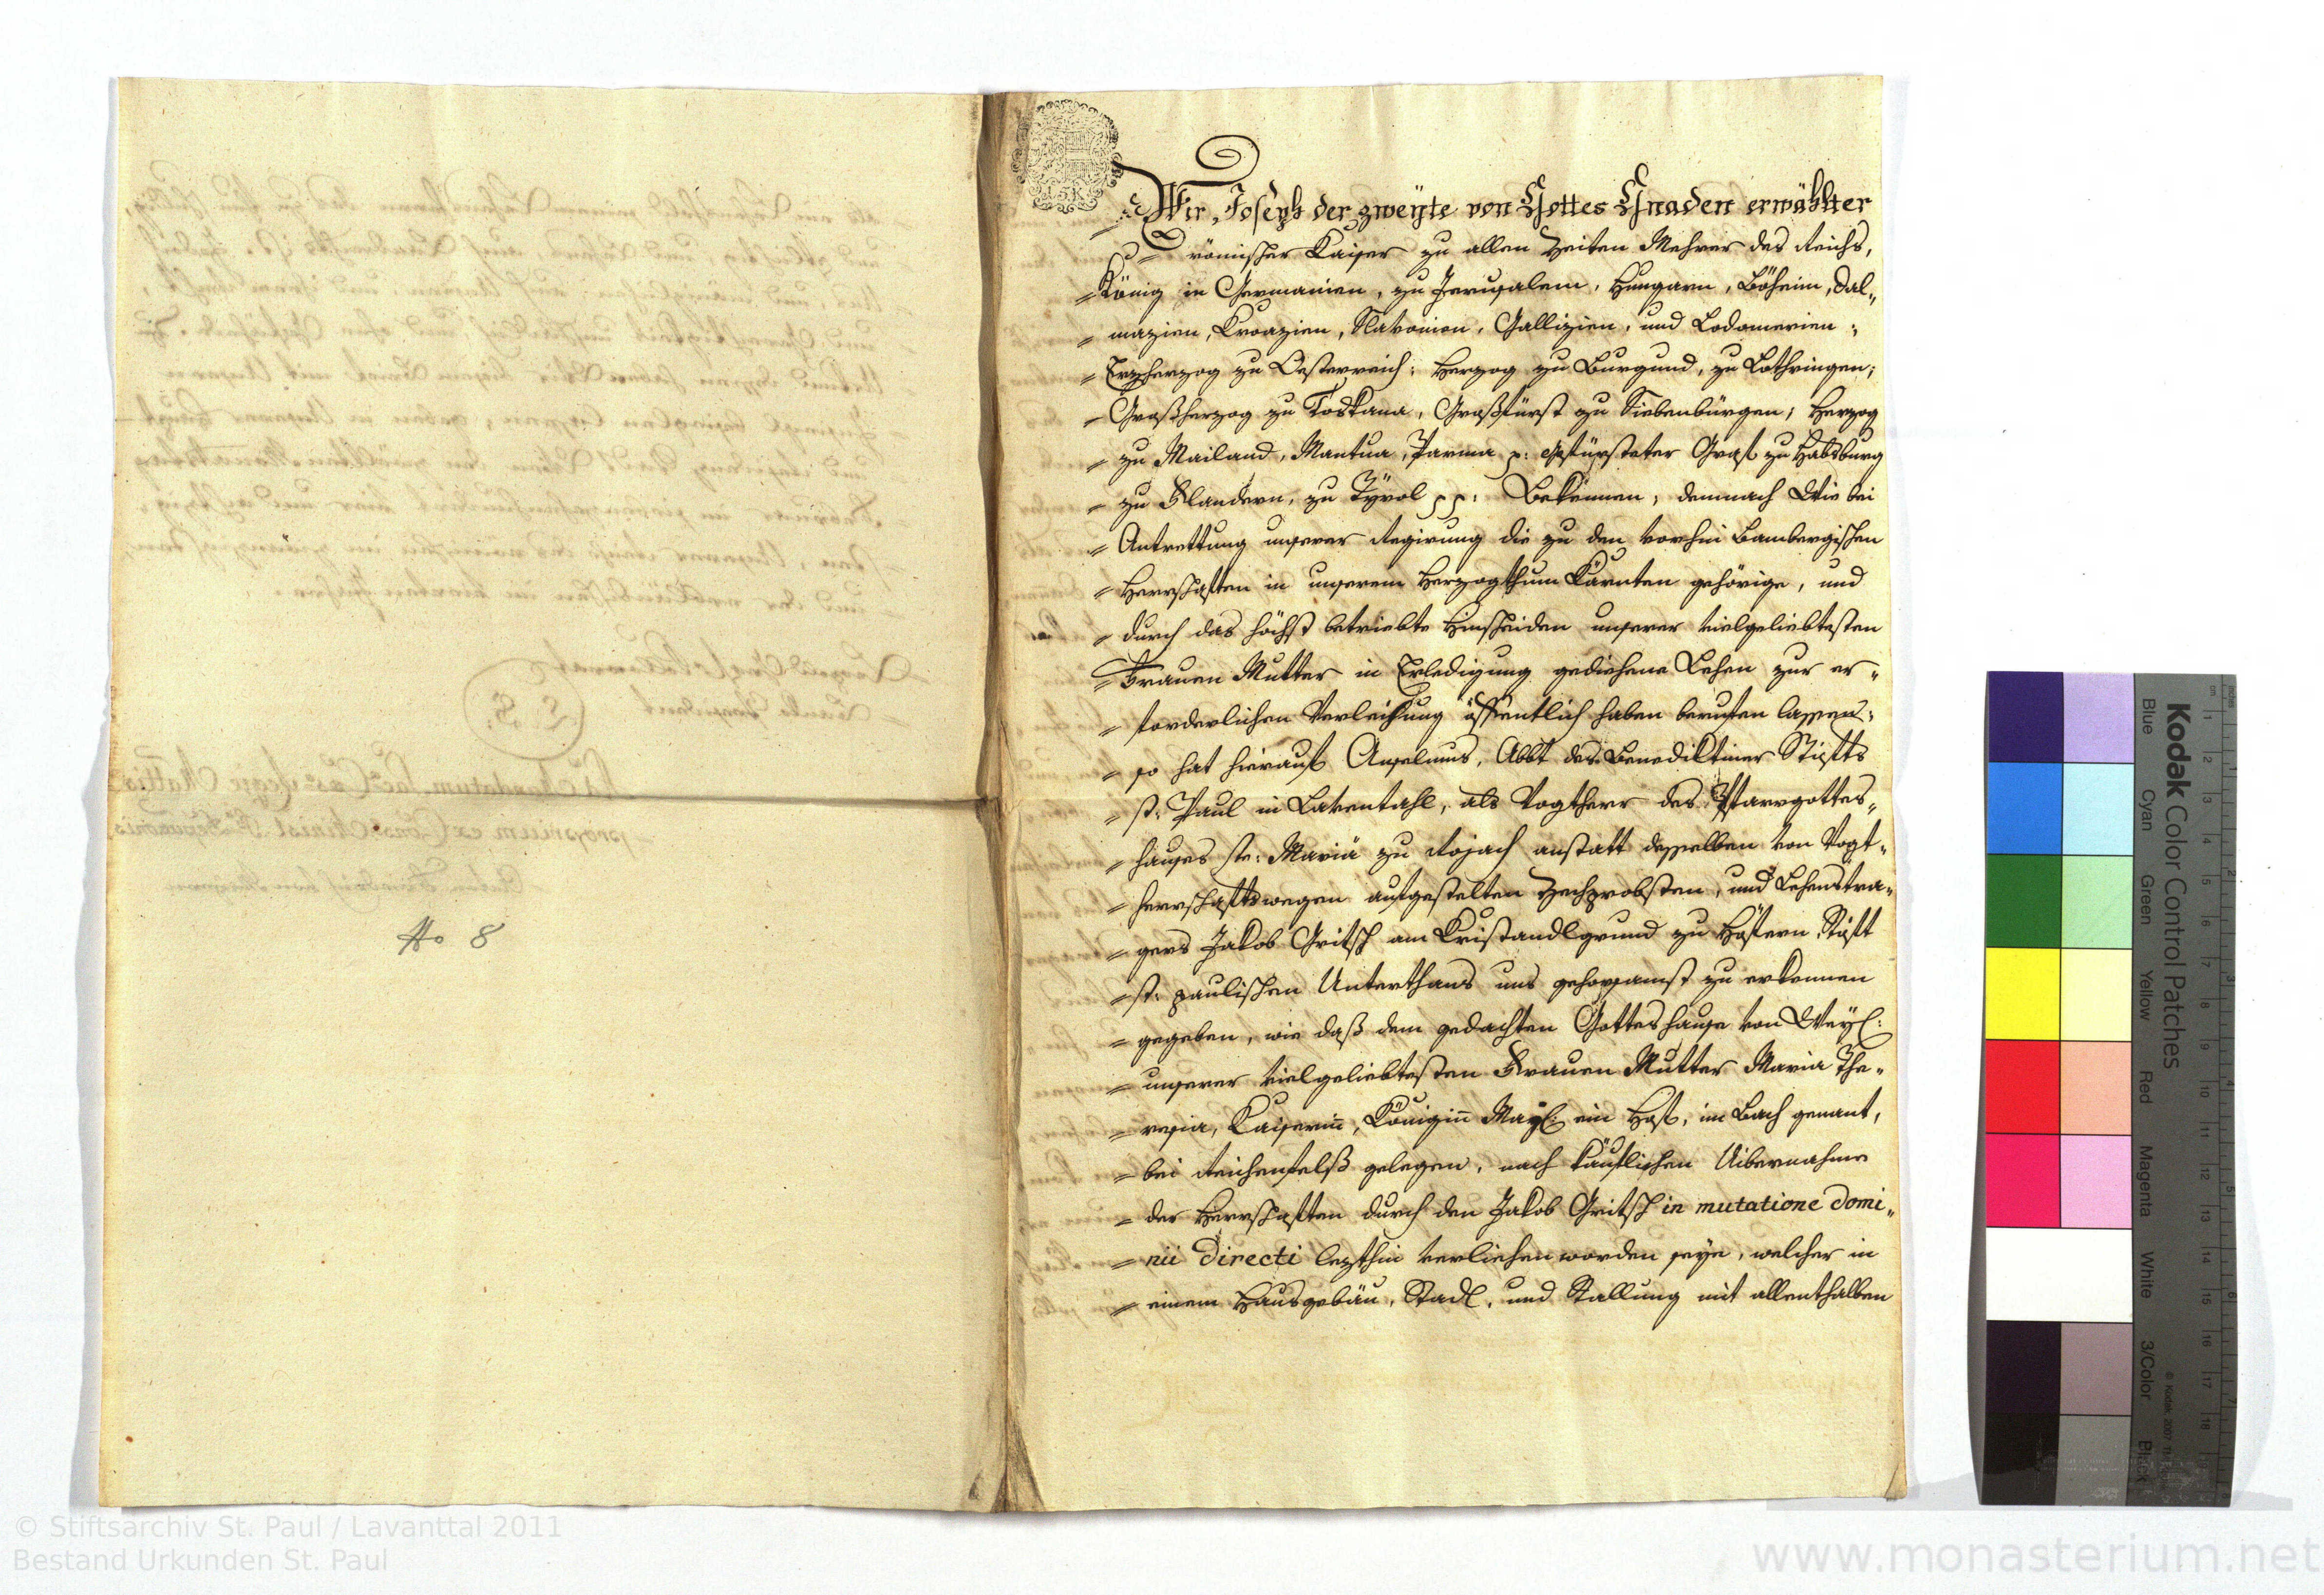 No 8
15 K
Wir Joseph der zweyte von Gottes Gnaden erwählter
römischer Kaiser zu allen Zeiten Mehrer des Reichs,
König in Germanien, zu Jerusalem, Hungarn, Böheim, Dal„
mazien, Kroazien, Slavonien, Gallizien, und Lodomerien;
Erzherzog zu Oesterreich; Herzog zu Burgund, zu Lothringen;
Großherzog zu Toskana, Großfürst zu Siebenbürgen; Herzog
zu Mailand, Mantua, Parma p: gefürsteter Graf zu Habsburg
zu Flandern, zu Tyrol pp: Bekennen, demnach Wir bei
Antrettung unserer Regirung die zu den vorhin Bambergischen
Herrschaften in unserem Herzogthum Kärnten gehörige, und
durch das höchst betriebte Hinscheiden unserer vielgeliebtesten
Frauen Mutter in Erledigung gediehene Lehen zur er„
forderlichen Verleihung öffentlich haben berufen lassen;
so hat hierauf Anselmus, Abbt des Benediktiner Stifts
st: Paul in Laventahl, als Vogtherr des Pfarrgottes„
hauses ste: Mariä zu Rojach anstatt desselben von Vogt„
herrschaftswegen aufgestelten Zechprobsten, und Lehenstra„
gers Jakob Gritsch am Kristandlgrund zu Höfern Stift
st: paulischen Unterthans uns gehorsamst zu erkennen
gegeben, wie daß dem gedachten Gotteshause von Weyl:
unserer vielgeliebtesten Frauen Mutter Maria The„
resia, Kaiserin̄, Königin̄ May: ein Hof, im Bach genant,
bei Reichenfelß gelegen, nach käuflichen Uibernahme
der Herrschaften durch den Jakob Gritsch in mutatione domi„
nii directi lezthin verliehen worden seye, welcher in
einem Hausgebäu, Stadl, und Stallung mit allenthalben
Kodak Color Control Patches
Blue Cyan Green Yellow Red Magenta White 3/Color Black
© Kodak 2007
© Stiftsarchiv St. Paul / Lavanttal 2011
Bestand Urkunden St. Paul
www.monasterium.net